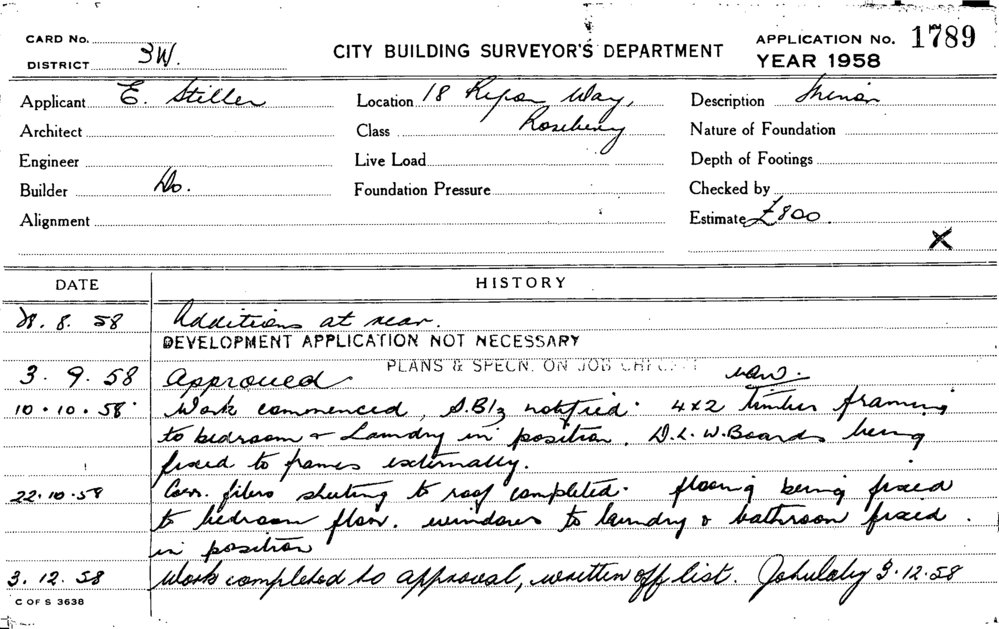 CARD No.
DISTRICT 3W.
CITY BUILDING SURVEYOR'S DEPARTMENT
APPLICATION No. 1789
YEAR 1958
Applicant E. Stiller
Architect
Engineer
Builder Do.
Alignment
Location 18 Ripon Way,
Rosebery
Class
Live Load
Foundation Pressure
Description Minor
Nature of Foundation
Depth of Footings
Checked by
Estimate £800.
X
DATE
HISTORY
8. 58 Additions at rear.
DEVELOPMENT APPLICATION NOT NECESSARY
PLANS & SPECN. ON JOB
3. 9. 58 Approved
10. 10. 58 Work commenced, notified. 4x2 timber framing
to bedroom & Laundry in position. D.L.W.Boards being
fixed to frames externally.
22. 10. 58 Corr. fibro sheeting to roof completed. flooring being fixed
to bedroom floor. windows to laundry & bathroom fixed.
in position
3. 12. 58 Work completed to approval, written off list. 3.12.58
C OF S 3638